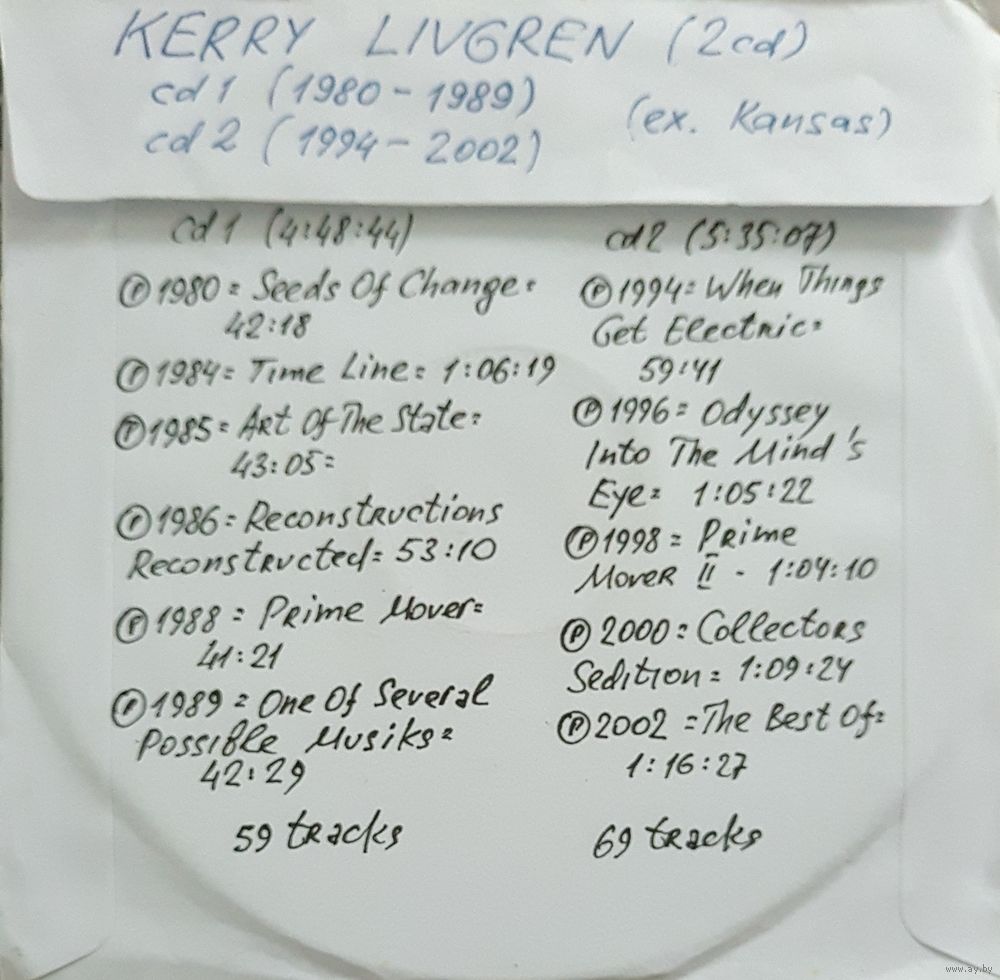 KERRY LIVGREN (2cd)
cd 1 (1980 - 1989)
(ex. Kansas)
cd 2 (1994 - 2002)
cd 1 (4:48:44)
Ⓟ 1980 = Seeds Of Change =
42:18
Ⓟ 1984 = Time Line = 1:06:19
Ⓟ 1985 = Art Of The State =
43:05 =
Ⓟ 1986 = Reconstructions
Reconstructed = 53:10
Ⓟ 1988 = Prime Mover =
41:21
Ⓟ 1989 = One Of Several
Possible Musiks =
42:29
59 tracks
cd 2 (5:35:07)
Ⓟ 1994 = When Things
Get Electric =
59:41
Ⓟ 1996 = Odyssey
Into The Mind's
Eye = 1:05:22
Ⓟ 1998 = Prime
Mover II - 1:04:10
Ⓟ 2000 = Collectors
Sedition = 1:09:24
Ⓟ 2002 = The Best Of =
1:16:27
69 tracks
www.ay.by